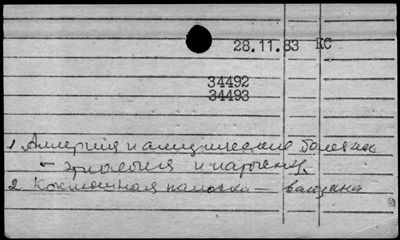 28.11.83 КС
34492
34493
1 Аллергия и аллергические болезни
- этиология и патогенез.
2 Коклюшная палочка - вакцина